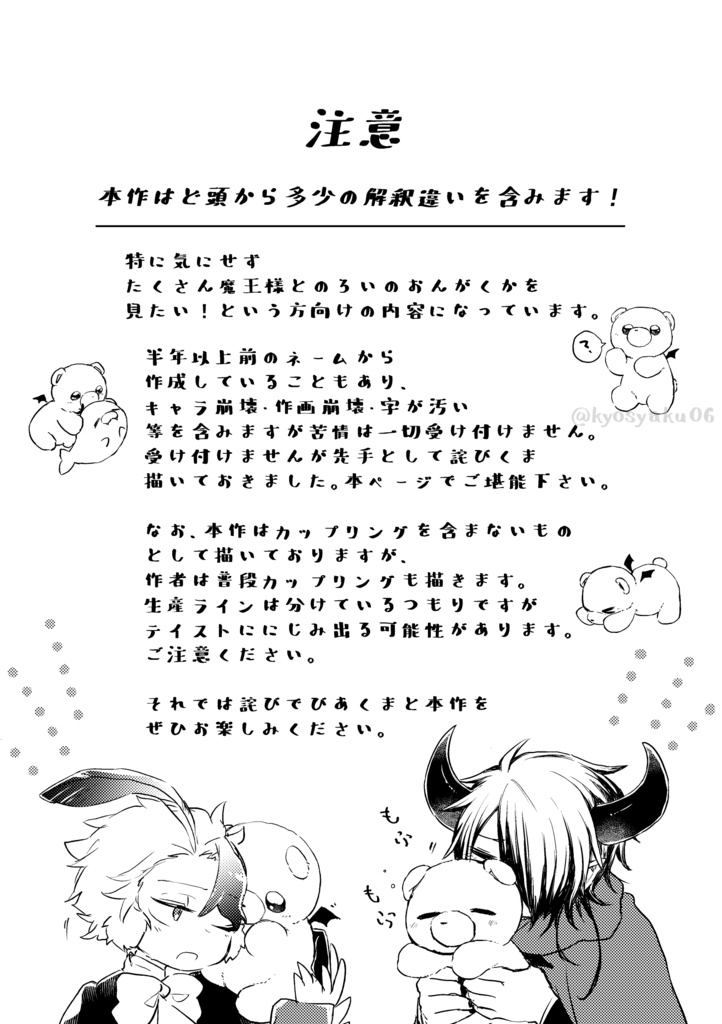 注意
本作はど頭から多少の解釈違いを含みます！
特に気にせず
たくさん魔王様とのろいのおんがくかを
見たい！という方向けの内容になっています。
半年以上前のネームから
作成していることもあり、
キャラ崩壊・作画崩壊・字が汚い
等を含みますが苦情は一切受け付けません。
受け付けませんが先手として詫びくま
描いておきました。本ページでご堪能下さい。
?
@kyosyaku06
なお、本作はカップリングを含まないもの
として描いておりますが、
作者は普段カップリングも描きます。
生産ラインは分けているつもりですが
テイストににじみ出る可能性があります。
ご注意ください。
それでは詫びでびあくまと本作を
ぜひお楽しみください。
もふ
もふ